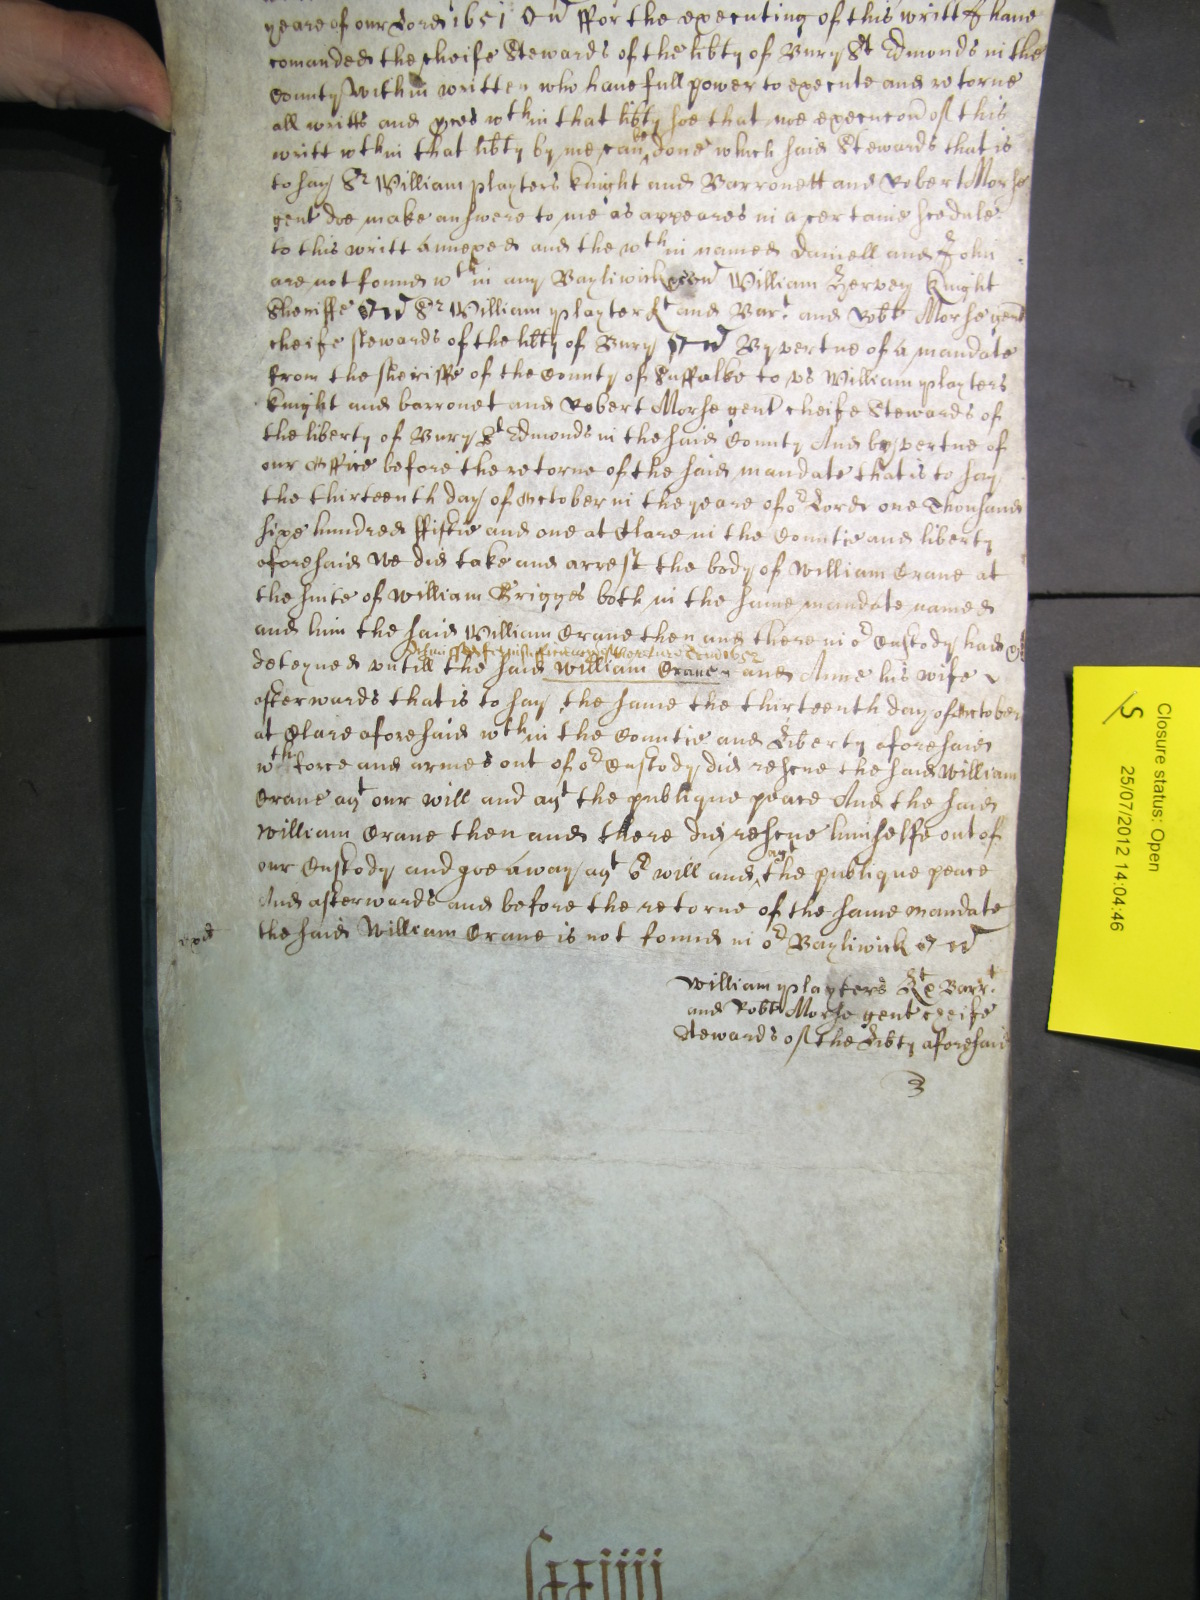 yeare of our Lord 1651 And ffor the executing of this writt I have
comanded the cheife Stewards of the libty of Bury St Edmonds in the
County within written who have full power to execute and retorne
all writts and pces wthin that libty soe that noe execucon of this
writt wthin that libty by me can be done which said Stewards that is
to say Sr William playters knight and Barronett and Robert Morse
gent doe make answere to me as appeares in a certaine scedule
to this writt annexed and the wthin named Daniell and John
are not found wthin any Bayliwick William Hervey knight
Sheriffe Sr William playter kt and Bart and Robt Morse gent
cheife stewards of the libty of Bury By vertue of a mandate
from the sheriffe of the County of Suffolke to us William playters
knight and barronet and Robert Morse gent cheife Stewards of
the liberty of Bury St Edmonds in the said County And by vertue of
our Office before the retorne of the said mandate that is to say
the thirteenth day of October in the yeare of or Lord one Thousand
sixe hundred ffiftie and one at Clare in the Countie and liberty
aforesaid We did take and arrest the body of William Crane at
the suite of William Brigges both in the same mandate named
and him the said William Crane then and there in or Custody had &
deteyned untill the said William Crane and Anne his wife
afterwards that is to say the same the thirteenth day of October
at Clare aforesaid wthin the Countie and Liberty aforesaid
wth force and armes out of or Custody did rescue the said William
Crane agt our will and agt the publique peace And the said
William Crane then and there did rescue himselfe out of
our Custody and goe away agt or will and agt the publique peace
And afterwards and before the retorne of the same mandate
the said William Crane is not found in or Bayliwick
William playters kt & Barrt
and Robt Morse gent cheife
Stewards of the Libty aforesaid
Closure status: Open
25/07/2012 14:04:46
S